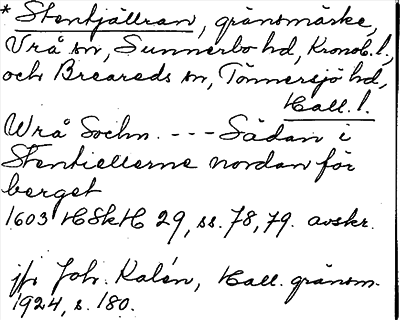 * Stentjällran, gränsmärke,
Vrå sn, Sunnerbo hd, Kronob. l.,
och Breareds sn, Tönnersjö hd,
Hall. l.
Wrå Sochn. --- Sädan i
Stentiellerne nordan för
berget
1603 HSkH 29, ss. 78, 79. avskr.
jfr Joh. Kalén, Hall. gränsm.
1924, s. 180.